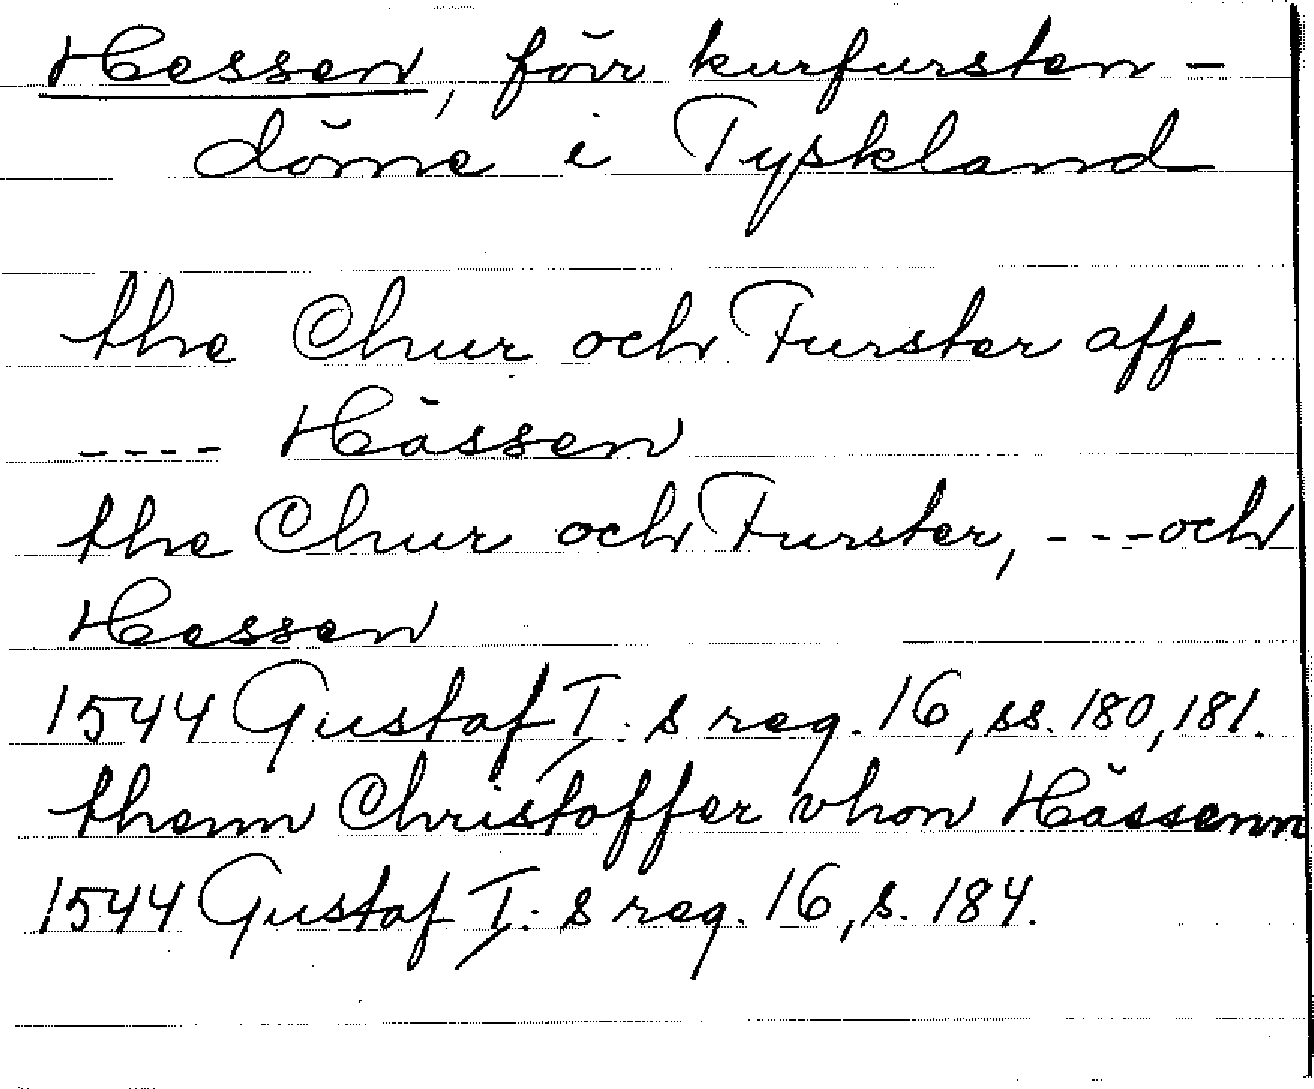 Hessen, förr kurfursten-
döme i Tyskland
the Chur och Furster aff
---- Hässen
the Chur och Furster, --- och
Hessen
1544 Gustaf I:s reg. 16, ss. 180, 181.
thenn Christoffer vhon Hässenn
1544 Gustaf I:s reg. 16, s. 184.